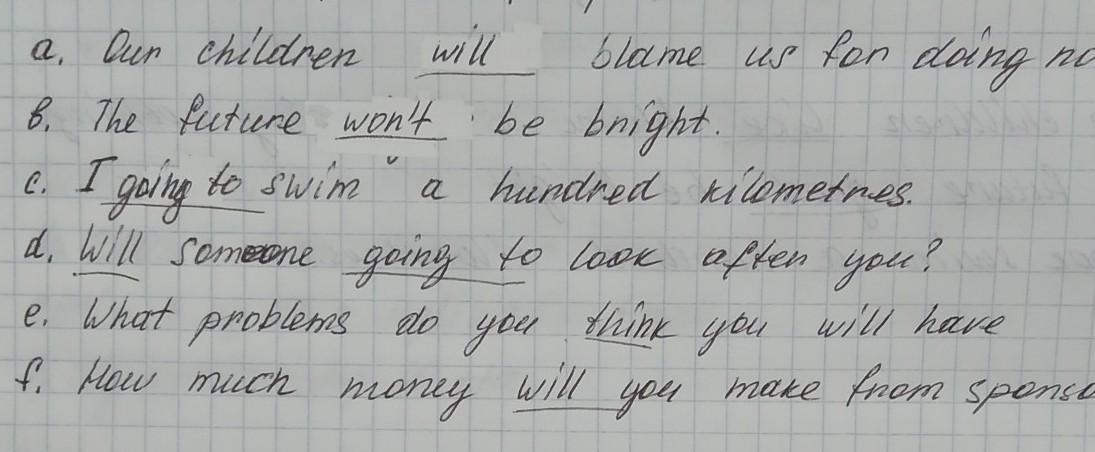 a. Our children will blame us for doing
b. The future won't be bright.
c. I going to swim a hundred kilometres.
d. Will someone going to look after you?
e. What problems do you think you will have
f. How much money will you make from